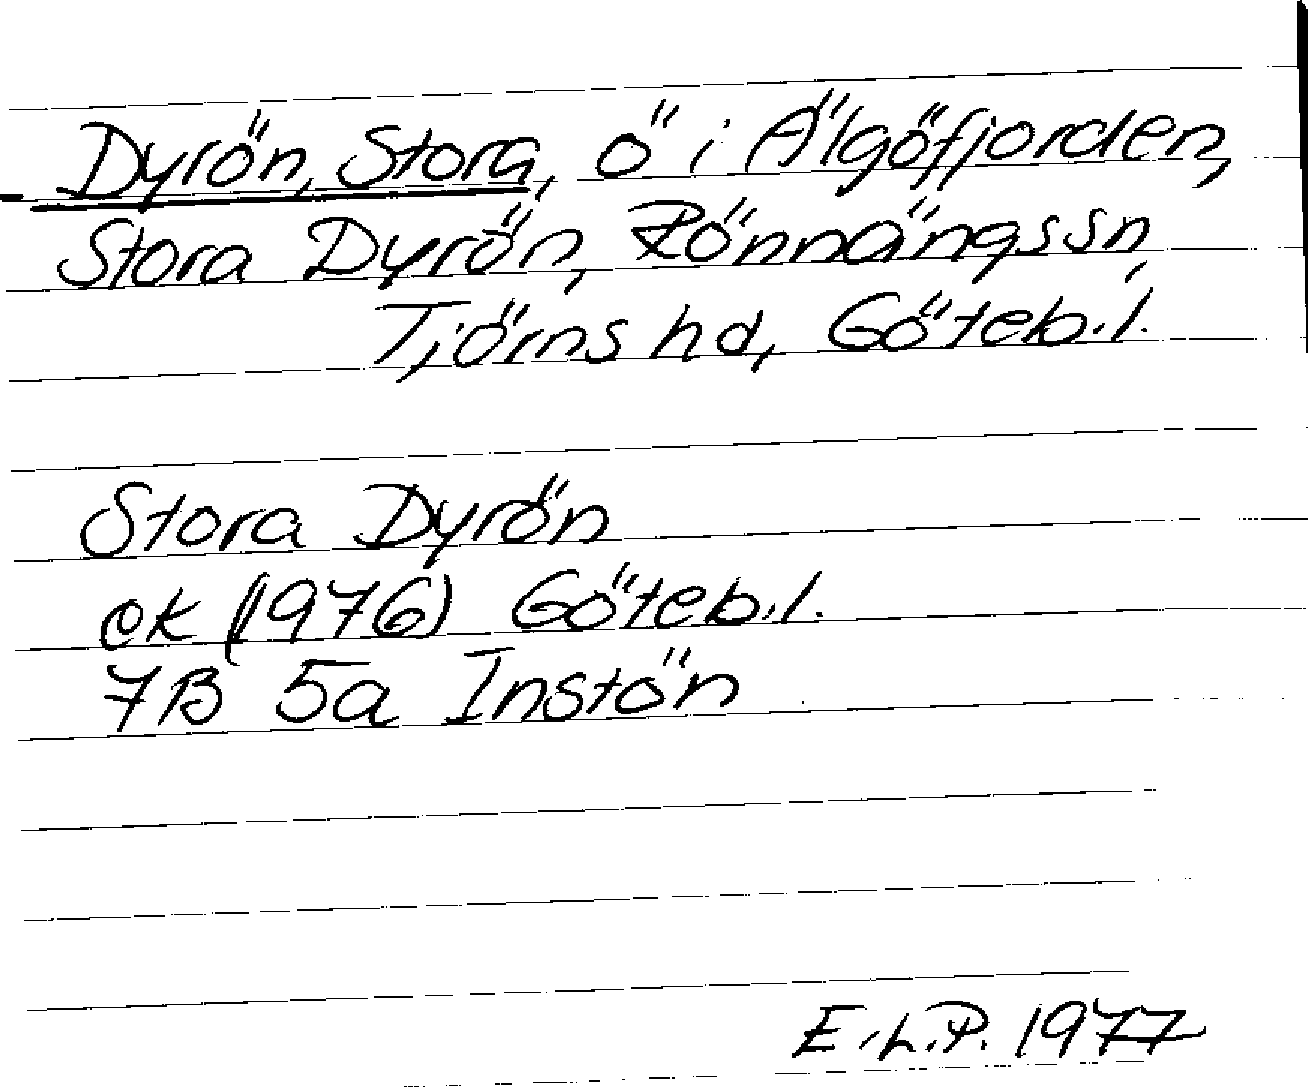 Dyrön, Stora, ö i Älgöfjorden,
Stora Dyrön, Rönnängs sn,
Tjörns hd, Göteb.l.
Stora Dyrön
ek (1976) Göteb.l.
7B 5a Instön
E.L.P. 1977